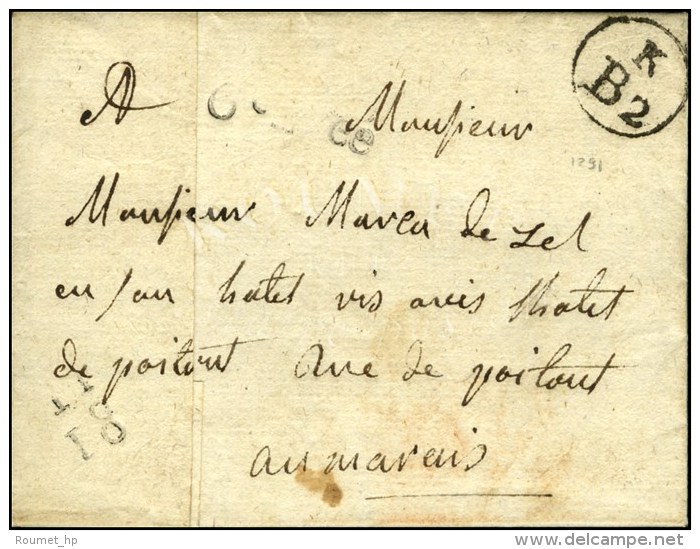 K
B 2
A Monsieur
1291
Monsieur Marca de zel
en son hotel vis avis lhotel
de poitout Rue de poitout
au marais
10
Roumet_hp
delcampe.net